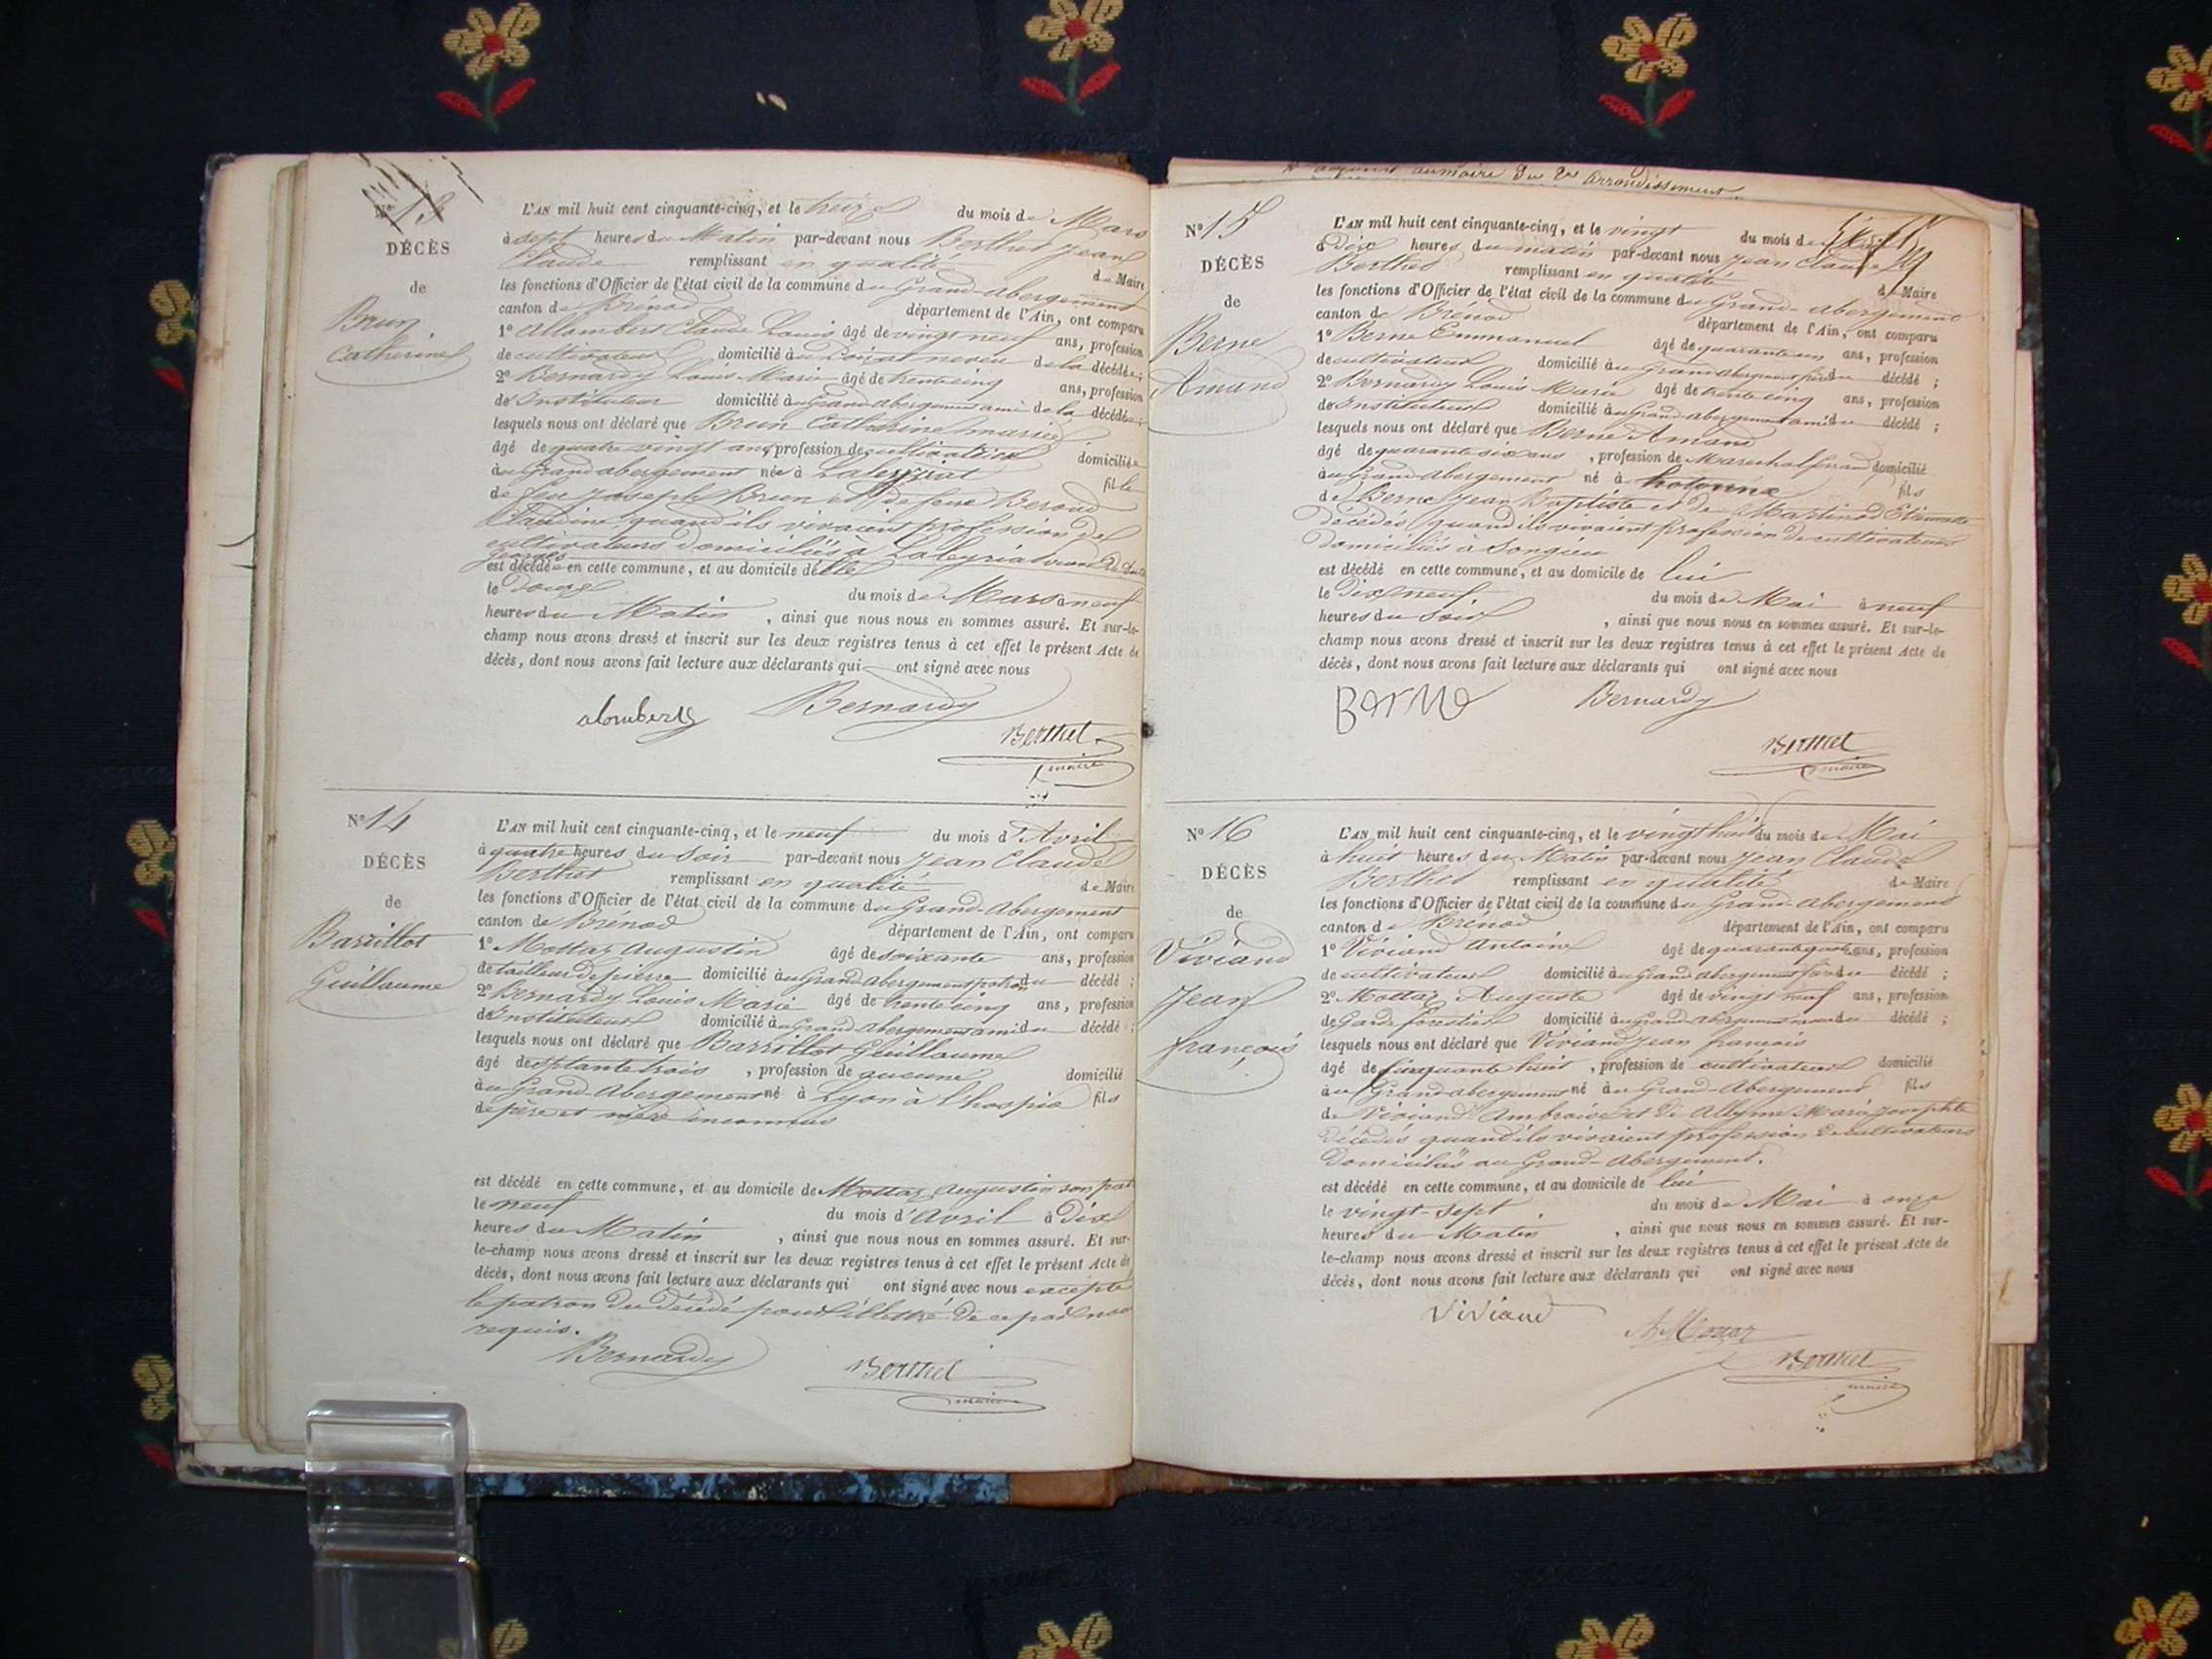 Nº 13
DÉCÈS
de
Brun
Catherine
L'AN mil huit cent cinquante-cinq, et le treize du mois de Mars
à sept heures du Matin par-devant nous Berthet Jean
Claude remplissant en qualité de Maire
les fonctions d'Officier de l'état civil de la commune du Grand-Abergement
canton de Brénod département de l'Ain, ont comparu
1º Allombert Claude Louis âgé de vingt neuf ans, profession
de cultivateur domicilié au neveu de la décédée ;
2º Bernardy Louis Marie âgé de trente cinq ans, profession
d'Instituteur domicilié au Grand abergement ami de la décédée ;
lesquels nous ont déclaré que Brun Catherine mariée
âgé de quatre vingt ans, profession de cultivatrice domiciliée
au Grand abergement née à Laleyriat fille
de feu Joseph Brun et de feue Beroud
Claudine quand ils vivaient profession de
cultivateurs domiciliés à Laleyriat
est décédée en cette commune, et au domicile d'elle
le douze du mois de Mars à neuf
heures du Matin, ainsi que nous nous en sommes assuré. Et sur-le-
champ nous avons dressé et inscrit sur les deux registres tenus à cet effet le présent Acte de
décès, dont nous avons fait lecture aux déclarants qui ont signé avec nous
alombert Bernardy
Berthet
maire
Nº 14
DÉCÈS
de
Barrillot
Guillaume
L'AN mil huit cent cinquante-cinq, et le neuf du mois d'Avril
à quatre heures du Soir par-devant nous Jean Claude
Berthet remplissant en qualité de Maire
les fonctions d'Officier de l'état civil de la commune du Grand-Abergement
canton de Brénod département de l'Ain, ont comparu
1º Mottaz Augustin âgé de soixante ans, profession
de tailleur de pierre domicilié au Grand abergement patron du décédé ;
2º Bernardy Louis Marie âgé de trente cinq ans, profession
d'Instituteur domicilié au Grand abergement ami du décédé ;
lesquels nous ont déclaré que Barrillot Guillaume
âgé de septante trois, profession de aucune domicilié
au Grand Abergement né à Lyon à l'hospice fils
de père et mère inconnus
est décédé en cette commune, et au domicile de Mottaz Augustin son patron
le neuf du mois d'Avril à dix
heures du Matin, ainsi que nous nous en sommes assuré. Et sur-
le-champ nous avons dressé et inscrit sur les deux registres tenus à cet effet le présent Acte de
décès, dont nous avons fait lecture aux déclarants qui ont signé avec nous excepté
le patron du décédé pour illettré de ce par
requis.
Bernardy Berthet
maire
au maire du 2e arrondissement
Nº 15
DÉCÈS
de
Berne
Amand
L'AN mil huit cent cinquante-cinq, et le vingt du mois de
à dix heures du matin par-devant nous Jean Claude
Berthet remplissant en qualité de Maire
les fonctions d'Officier de l'état civil de la commune du Grand-Abergement
canton de Brénod département de l'Ain, ont comparu
1º Berne Emmanuel âgé de quarante ans, profession
de cultivateur domicilié au Grand abergement frère du décédé ;
2º Bernardy Louis Marie âgé de trente cinq ans, profession
d'Instituteur domicilié au Grand abergement ami du décédé ;
lesquels nous ont déclaré que Berne Amand
âgé de quarante six ans, profession de Marechal ferrand domicilié
au Grand Abergement né à hotonne fils
de Berne Jean Baptiste et de Martinod Etiennette
décédés quand ils vivaient profession de cultivateurs
domiciliés à Songieu
est décédé en cette commune, et au domicile de lui
le dix neuf du mois de Mai à neuf
heures du Soir, ainsi que nous nous en sommes assuré. Et sur-le-
champ nous avons dressé et inscrit sur les deux registres tenus à cet effet le présent Acte de
décès, dont nous avons fait lecture aux déclarants qui ont signé avec nous
Berne Bernardy
Berthet
maire
Nº 16
DÉCÈS
de
Viviand
Jean
françois
L'AN mil huit cent cinquante-cinq, et le vingt huit du mois de Mai
à huit heures du Matin par-devant nous Jean Claude
Berthet remplissant en qualité de Maire
les fonctions d'Officier de l'état civil de la commune du Grand-Abergement
canton de Brénod département de l'Ain, ont comparu
1º Viviand Antoine âgé de quarante quatre ans, profession
de cultivateur domicilié au Grand abergement frère du décédé ;
2º Mottaz Auguste âgé de vingt neuf ans, profession
de Garde forestier domicilié au Grand abergement neveu du décédé ;
lesquels nous ont déclaré que Viviand Jean francois
âgé de cinquante huit, profession de cultivateur domicilié
au Grand abergement né au Grand-Abergement fils
de Viviand Ambroise et de Allyme Marie Josephte
décédés quand ils vivaient profession de cultivateurs
domiciliés au Grand-Abergement.
est décédé en cette commune, et au domicile de lui
le vingt-sept du mois de Mai à onze
heures du Matin, ainsi que nous nous en sommes assuré. Et sur-
le-champ nous avons dressé et inscrit sur les deux registres tenus à cet effet le présent Acte de
décès, dont nous avons fait lecture aux déclarants qui ont signé avec nous
Viviand
A Mottaz
Berthet
maire